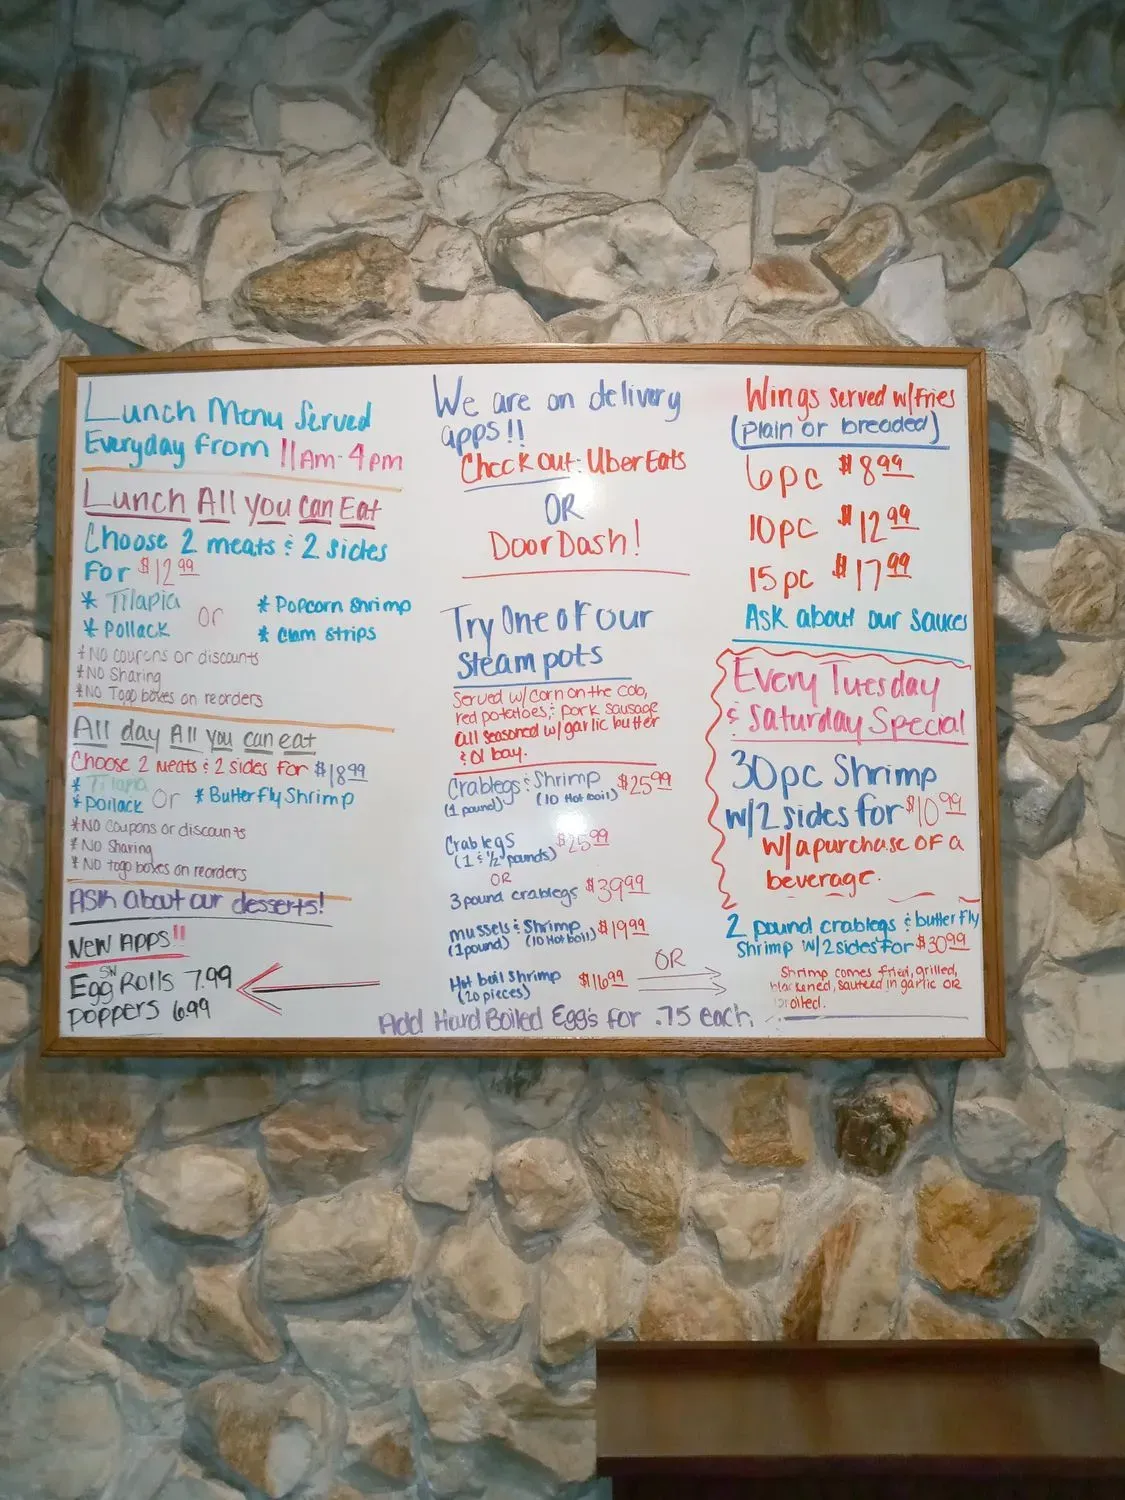 Lunch Menu Served
Everyday from 11am-4pm
Lunch All you can Eat
Choose 2 meats & 2 sides
For $12.99
* Tilapia
* Pollack
or
* Popcorn Shrimp
* Clam strips
* No coupons or discounts
* No Sharing
* No Togo boxes on reorders
All day All you can eat
Choose 2 meats & 2 sides for $18.99
* Tilapia
* Pollack or * Butterfly Shrimp
* No coupons or discounts
* No Sharing
* No togo boxes on reorders
Ask about our desserts!
New Apps!!
SW
Egg Rolls 7.99
Poppers 6.99
We are on delivery
apps!!
Check out: Uber Eats
OR
DoorDash!
Try One of our
Steam pots
Served w/corn on the cob,
red potatoes, & pork sausage
all seasoned w/garlic butter
& ol bay.
Crablegs & Shrimp $25.99
(1 pound) (10 Hot boil)
Crablegs $25.99
(1 & 1/2 pounds)
OR
3 pound crablegs $39.99
mussels & Shrimp $19.99
(1 pound) (10 Hot boil)
Hot boil shrimp $16.99
(20 pieces)
OR
Add Hard Boiled Egg's for .75 each
Wings served w/fries
(plain or breaded)
6pc $8.99
10pc $12.99
15pc $17.99
Ask about our sauces
Every Tuesday
& Saturday Special
30pc Shrimp
w/2 sides for $10.99
w/a purchase of a
beverage.
2 pound crablegs & butterfly
Shrimp w/2 sides for $30.99
Shrimp comes fried, grilled,
blackened, sauteed in garlic or
broiled.